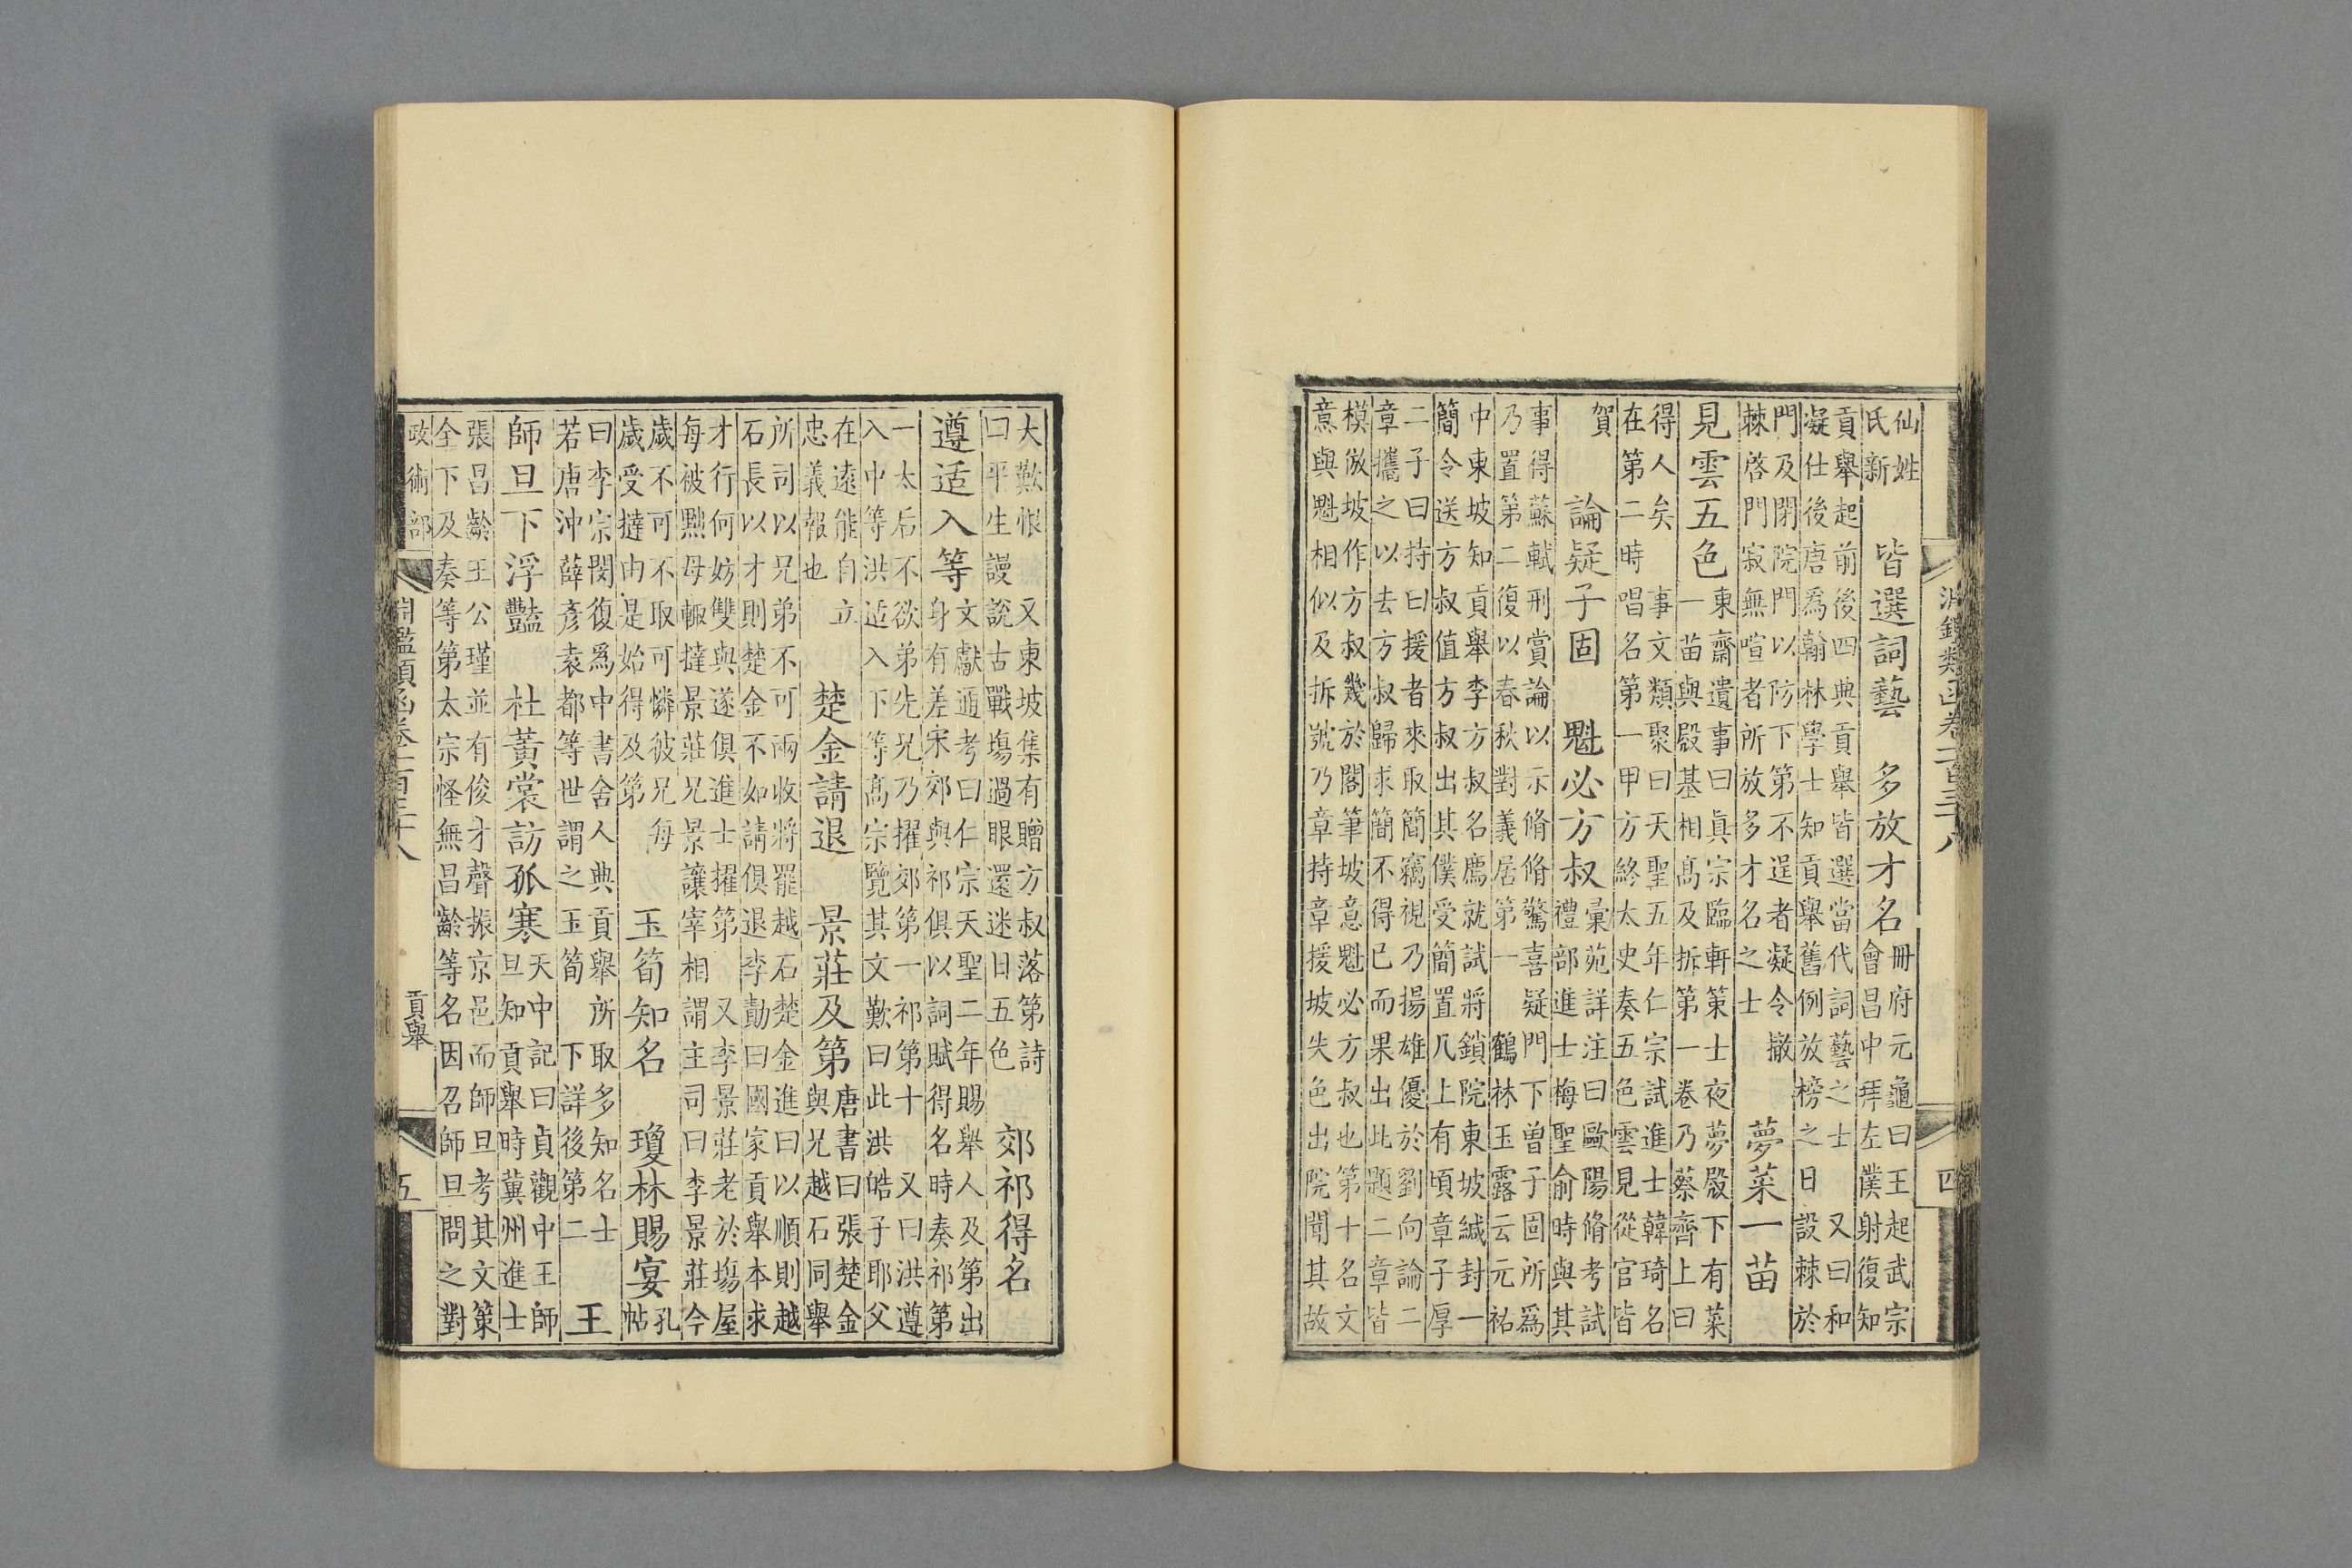 淵鑑類函卷一百三十八 四
仙姓
氏新
皆選詞藝 多放才名
冊府元龜曰王起武宗
會昌中拜左僕射復知
貢舉起前後四典貢舉皆選當代詞藝之士 又曰和
凝仕後唐爲翰林學士知貢舉舊例放榜之日設棘於
門及閉院門以防下第不逞者凝令撤
棘啓門寂無喧者所放多才名之士
夢菜一苗
見雲五色
東齋遺事曰眞宗臨軒策士夜夢殿下有菜
一苗與殿基相高及拆第一卷乃蔡齊上曰
得人矣 事文類聚曰天聖五年仁宗試進士韓琦名
在第二時唱名第一甲方終太史奏五色雲見從官皆
賀
論疑子固 魁必方叔
彙苑詳注曰歐陽脩考試
禮部進士梅聖俞時與其
事得蘇軾刑賞論以示脩脩驚喜疑門下曽子固所爲
乃置第二復以春秋對義居第一 鶴林玉露云元祐
中東坡知貢舉李方叔名薦就試將鎖院東坡緘封一
簡令送方叔值方叔出其僕受簡置几上有頃章子厚
二子曰持曰援者來取簡竊視乃揚雄優於劉向論二
章攜之以去方叔歸求簡不得已而果出此題二章皆
模倣坡作方叔幾於閣筆坡意魁必方叔也第十名文
意與魁相似及拆號乃章持章援坡失色出院聞其故
大歎恨 又東坡集有贈方叔落第詩
曰平生謾說古戰塲過眼還迷日五色
郊祁得名
遵适入等
文獻通考曰仁宗天聖二年賜舉人及第出
身有差宋郊與祁俱以詞賦得名時奏祁第
一太后不欲弟先兄乃擢郊第一祁第十 又曰洪遵
入中等洪适入下等高宗覽其文歎曰此洪皓子耶父
在遠能自立
忠義報也
楚金請退 景莊及第
唐書曰張楚金
與兄越石同舉
所司以兄弟不可兩收將罷越石楚金進曰以順則越
石長以才則楚金不如請俱退李勣曰國家貢舉本求
才行何妨雙與遂俱進士擢第 又李景莊老於塲屋
每被黜母輒撻景莊兄景讓宰相謂主司曰李景莊今
歲不可不取可憐彼兄每
歲受撻由是始得及第
玉筍知名 瓊林賜宴
孔
帖
曰李宗閔復爲中書舍人典貢舉所取多知名士
若唐沖薛彥袁都等世謂之玉筍 下詳後第二
王
師旦下浮豔 杜黃裳訪孤寒
天中記曰貞觀中王師
旦知貢舉時冀州進士
張昌齡王公瑾並有俊才聲振京邑而師旦考其文策
全下及奏等第太宗怪無昌齡等名因召師旦問之對
政術部 淵鑑類函卷一百三十八 貢舉 五